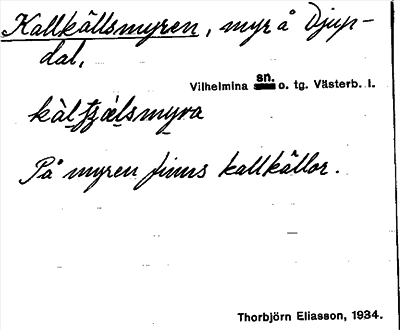 Kallkällsmyren, myr å Djup-
dal,
Vilhelmina sn. o. tg. Västerb. l.
På myren finns kallkällor.
Thorbjörn Eliasson, 1934.